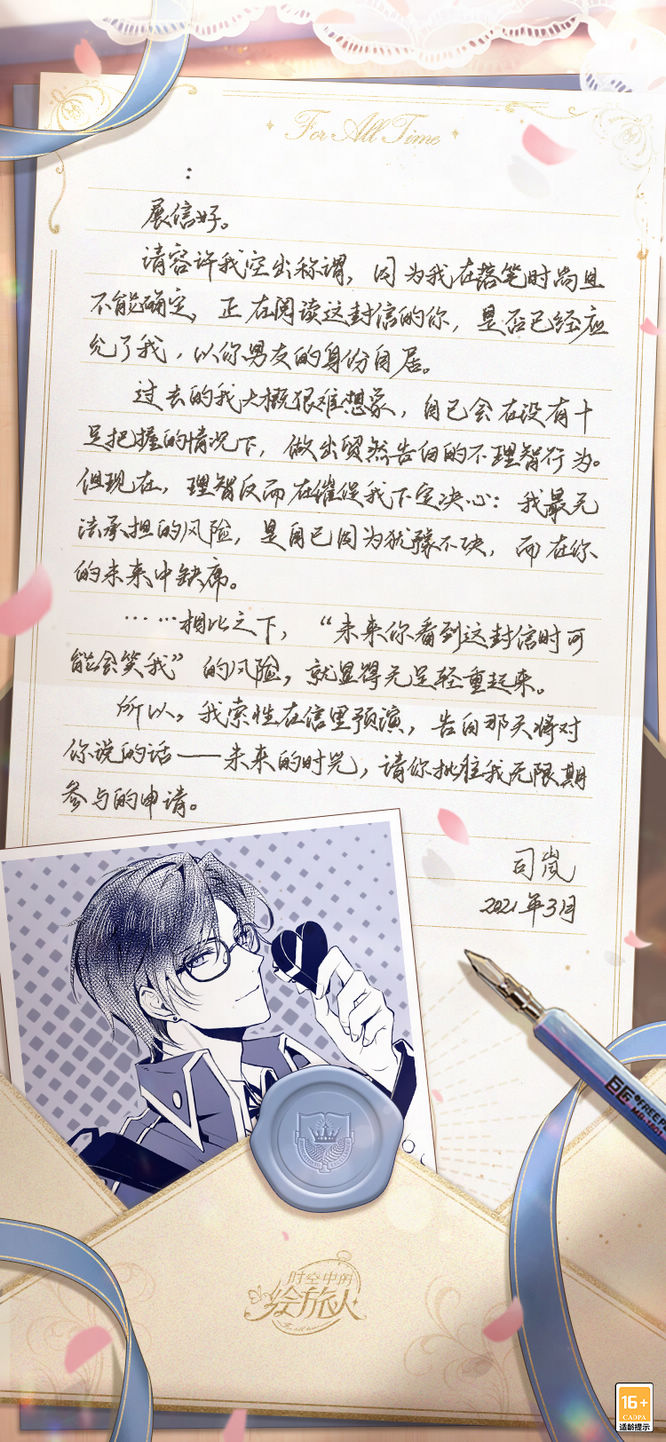 For All Time
：
展信好。
请容许我空出称谓，因为我在落笔时尚且
不能确定，正在阅读这封信的你，是否已经应
允了我，以你男友的身份自居。
过去的我大概很难想象，自己会在没有十
足把握的情况下，做出贸然告白的不理智行为。
但现在，理智反而在催促我下定决心：我最无
法承担的风险，是自己因为犹豫不决，而在你
的未来中缺席。
……相比之下，“未来你看到这封信时可
能会笑我”的风险，就显得无足轻重起来。
所以，我索性在信里预演，告白那天将对
你说的话——未来的时光，请你批准我无限期
参与的申请。
司岚
2021年3月
时空中的
绘旅人
16+
CADPA
适龄提示